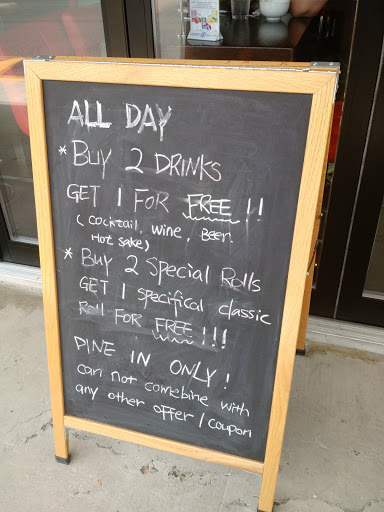 ALL DAY
* BUY 2 DRINKS
GET 1 FOR FREE !!
(Cocktail, wine, Beer.
Hot Sake)
* BUY 2 Special Rolls
GET 1 specifical classic
Roll FOR FREE !!!
DINE IN ONLY!
can not comebine with
any other offer / coupon